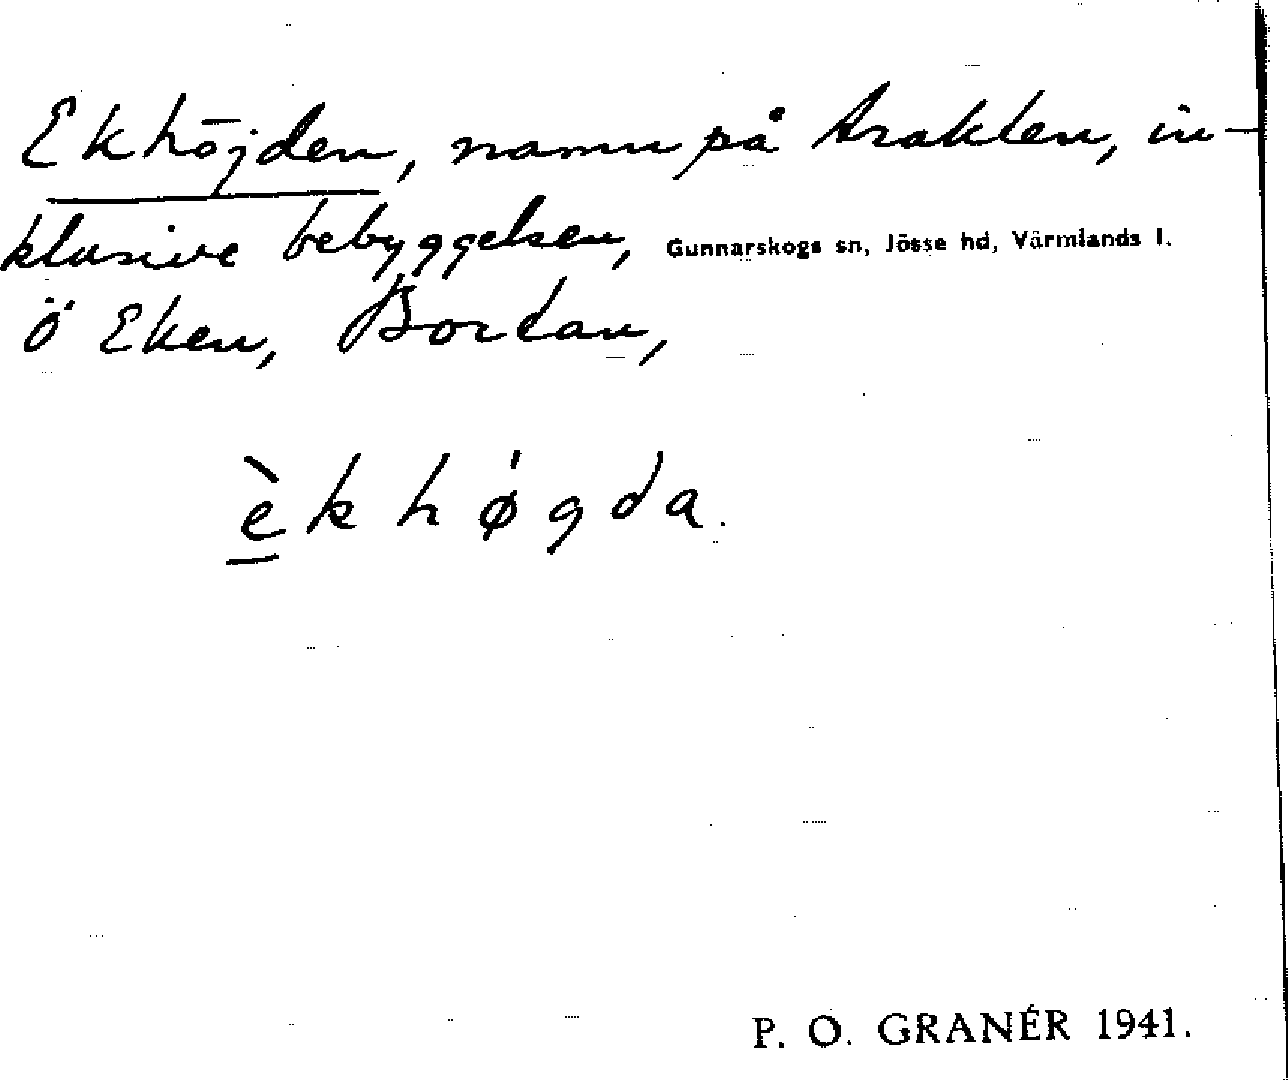 Ekhöjden, namn på trakten, in-
klusive bebyggelsen, Gunnarskogs sn, Jösse hd, Värmlands l.
ö Eken, Bortan,
èkhøgda.
P. O. GRANÉR 1941.